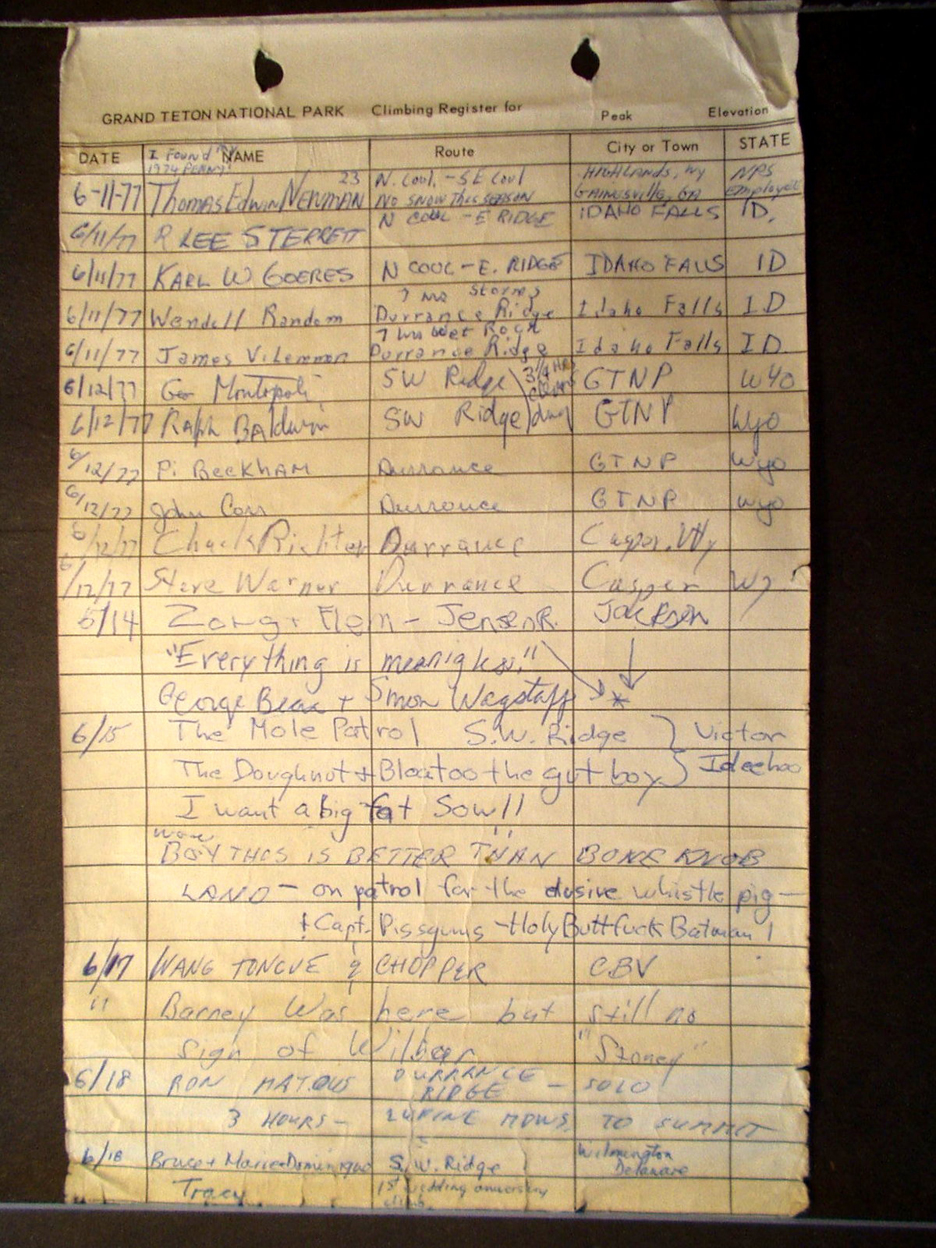 GRAND TETON NATIONAL PARK Climbing Register for Peak Elevation
DATE NAME Route City or Town STATE
I Found 1974 PENNY
6-11-77 Thomas Edwin NEWMAN 23 N. Coul. - S E Coul NO SNOW THIS SEASON HIGHLANDS, NJ GAINESVILLE, GA NPS Employee
6/11/77 R LEE STERRETT N COUL - E RIDGE IDAHO FALLS ID.
6/11/77 KARL W GOERES N COUL - E. RIDGE IDAHO FALLS ID
6/11/77 Wendell Random Durrance Ridge Idaho Falls ID
6/11/77 James V. Durrance Ridge Idaho Falls ID.
6/12/77 Geo Montopoli SW Ridge GTNP WYO
6/12/77 Ralph Baldwin SW Ridge GTNP Wyo
6/12/77 Pi Beckham Durrance GTNP Wyo
6/12/77 John Carr Durrance GTNP Wyo
6/12/77 Chuck Richter Durrance Casper, Wy
6/12/77 Steve Warner Durrance Casper Wy
6/14 Zong + Flem - Jensen R. Jackson
"Everything is meanigless."
George Beax + Simon Wagstaff *
6/15 The Mole Patrol S.W. Ridge } Victor
The Doughnut + Bloatoo the gut boy } Ideehoo
I want a big fat Sow!!
wow
BOY THIS IS BETTER THAN BONE KNOB
LAND - on patrol for the elusive whistle pig -
+ Capt. Pissgums - Holy Buttfuck Batman!
6/17 WANG TONGUE & CHOPPER CBV
" Barney Was here but still no
sign of Wilber "Stoney"
6/18 RON MATOUS DURRANCE RIDGE - SOLO
3 HOURS - LUPINE MDWS. TO SUMMIT
6/18 Bruce + Marie S.W. Ridge Wilmington Delaware
Tracy 1st wedding anniversary climb.